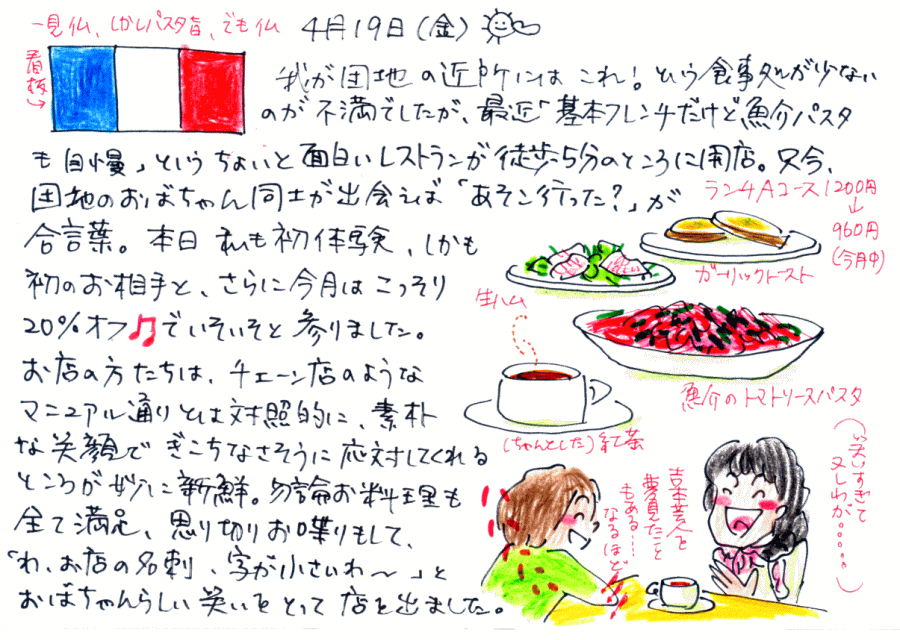 一見仏、しかしパスタ旨、でも仏
4月19日（金）
看板→
我が団地の近所にはこれ！という食事処が少ない
のが不満でしたが、最近「基本フレンチだけど魚介パスタ
も自慢」というちょいと面白いレストランが徒歩5分のところに開店。只今、
団地のおばちゃん同士が出会えば「あそこ行った？」が
合言葉。本日私も初体験、しかも
初のお相手と、さらに今月はこっそり
20%オフ♫でいそいそと参りました。
お店の方たちは、チェーン店のような
マニュアル通りとは対照的に、素朴
な笑顔でぎこちなさそうに応対してくれる
ところが妙に新鮮。勿論お料理も
全て満足、思い切りお喋りもして、
「わ、お店の名刺、字が小さいわ〜」と
おばちゃんらしい笑いをとって店を出ました。
ランチAコース1200円
↓
960円
（今月中）
ガーリックトースト
生ハム
魚介のトマトソースパスタ
（ちゃんとした）紅茶
吉本芸人を
夢見たこと
もある……
なるほど
（笑いすぎて
又しわが……）